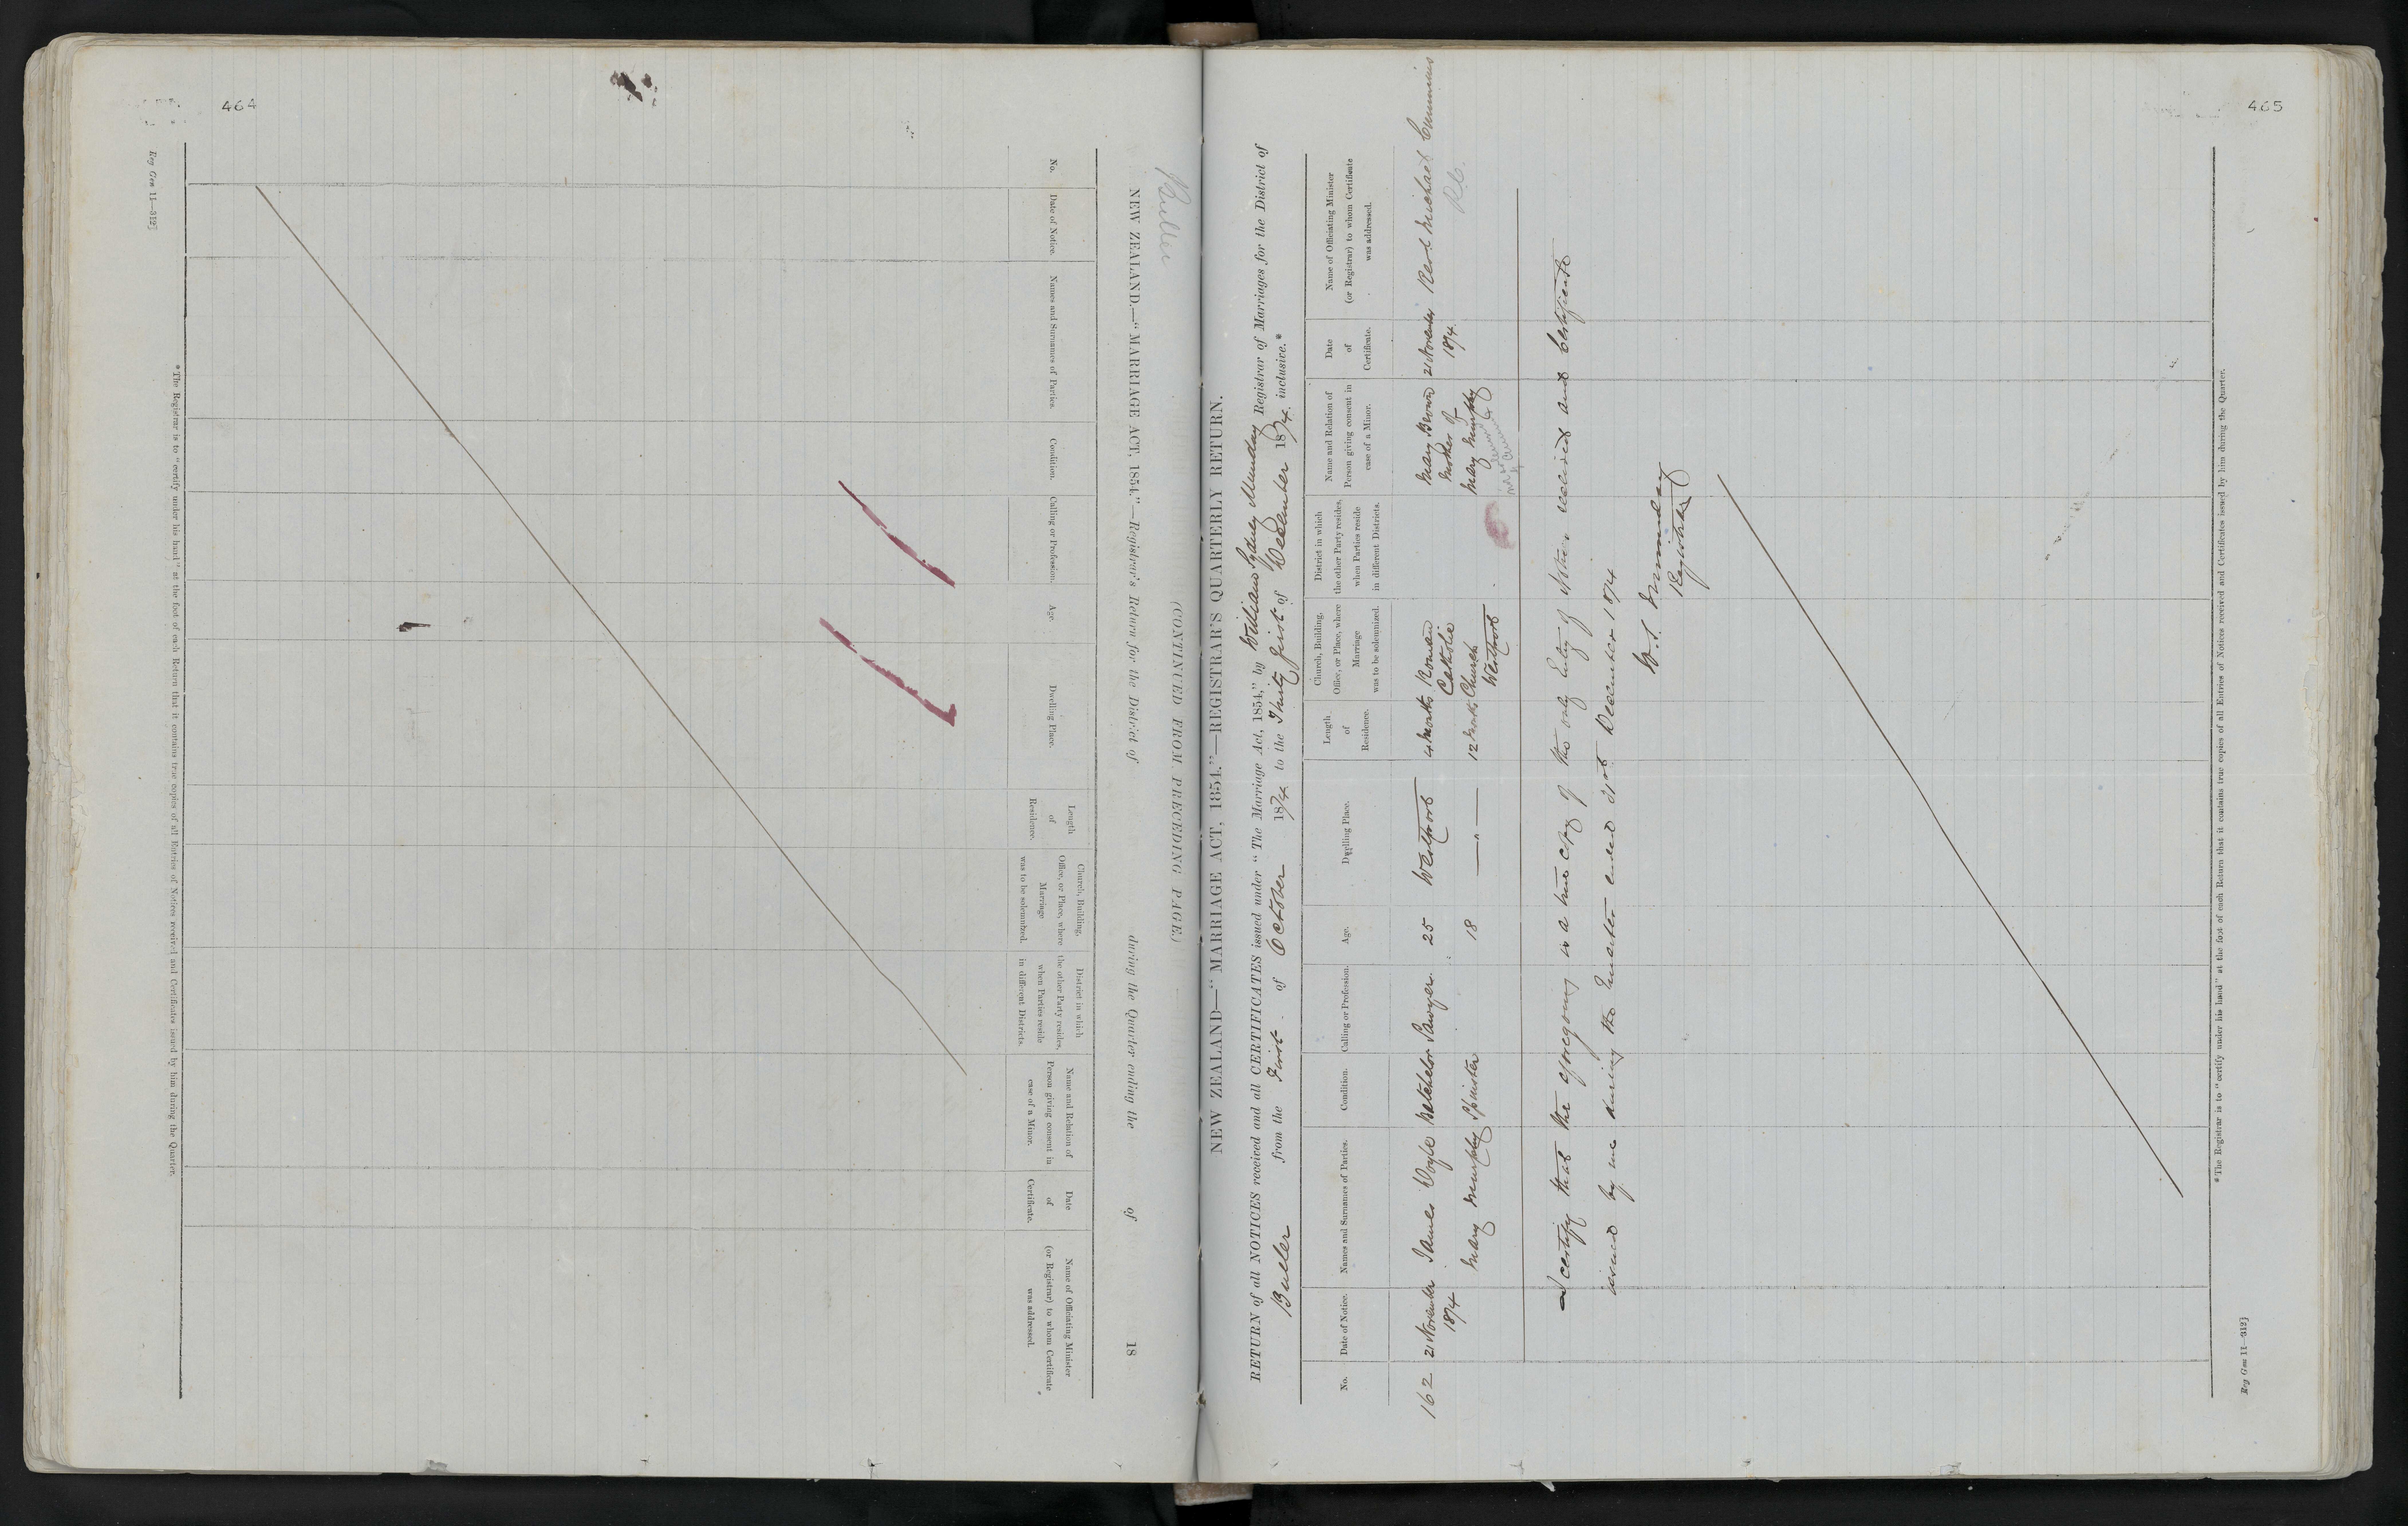 464
Reg Gen 11—312]
Buller
(CONTINUED FROM PRECEDING PAGE.)
NEW ZEALAND.—"MARRIAGE ACT, 1854."—Registrar's Return for the District of during the Quarter ending the of 18
No.
Date of Notice.
Names and Surnames of Parties.
Condition.
Calling or Profession.
Age.
Dwelling Place.
Length
of
Residence.
Church, Building,
Office, or Place, where
Marriage
was to be solemnized.
District in which
the other Party resides,
when Parties reside
in different Districts.
Name and Relation of
Person giving consent in
case of a Minor.
Date
of
Certificate.
Name of Officiating Minister
(or Registrar) to whom Certificate
was addressed.
* The Registrar is to "certify under his hand" at the foot of each Return that it contains true copies of all Entries of Notices received and Certificates issued by him during the Quarter.
465
NEW ZEALAND—"MARRIAGE ACT, 1854."—REGISTRAR'S QUARTERLY RETURN.
RETURN of all NOTICES received and all CERTIFICATES issued under "The Marriage Act, 1854," by William Sydney Munday Registrar of Marriages for the District of
Buller from the First of October 1874 to the Thirty first of December 1874 inclusive.*
No.
Date of Notice.
Names and Surnames of Parties.
Condition.
Calling or Profession.
Age.
Dwelling Place.
Length
of
Residence.
Church, Building,
Office, or Place, where
Marriage
was to be solemnized.
District in which
the other Party resides,
when Parties reside
in different Districts.
Name and Relation of
Person giving consent in
case of a Minor.
Date
of
Certificate.
Name of Officiating Minister
(or Registrar) to whom Certificate
was addressed.
162
21 November
1874
James Doyle
Mary Murphy
Batchelor
Spinster
Sawyer
25
18
Westport
— " —
4 Months
12 Months
Roman
Catholic
Church
Westport
Mary Brown
Mother of
Mary Murphy
21 November
1874
Revd Michael Cummins
R.C.
I certify that the aforegoing is a true copy of the only Entry of Notices received and Certificate
issued by me during the Quarter ended 31st December 1874
W. S. Munday
Registrar
* The Registrar is to "certify under his hand" at the foot of each Return that it contains true copies of all Entries of Notices received and Certificates issued by him during the Quarter.
Reg Gen 11—312]